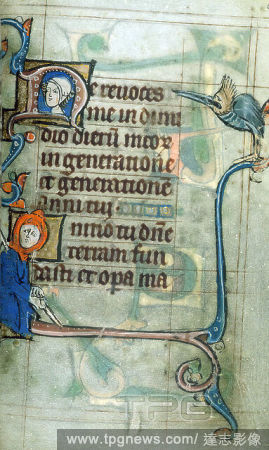 Ne reuoces
me in dimi
dio dierū meoꝝ
in generatione
et generatione
anni tui
nitio tu dn̄e
terram fun
dasti et opa ma
TPG
www.tpgnews.com/ 達志影像